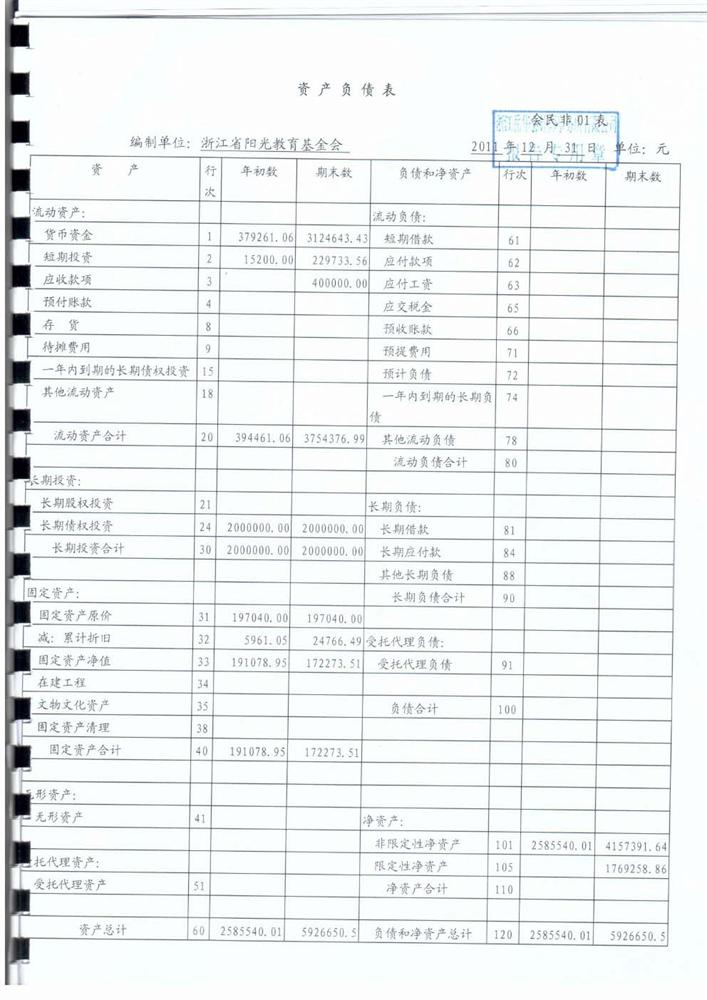 资产负债表
会民非01表
编制单位：浙江省阳光教育基金会 2011 年 12 月 31 日 单位：元
资 产 行次 年初数 期末数 负债和净资产 行次 年初数 期末数
流动资产： 流动负债：
货币资金 1 379261.06 3124643.43 短期借款 61
短期投资 2 15200.00 229733.56 应付款项 62
应收款项 3 400000.00 应付工资 63
预付账款 4 应交税金 65
存 货 8 预收账款 66
待摊费用 9 预提费用 71
一年内到期的长期债权投资 15 预计负债 72
其他流动资产 18 一年内到期的长期负债 74
流动资产合计 20 394461.06 3754376.99 其他流动负债 78
流动负债合计 80
长期投资：
长期股权投资 21 长期负债：
长期债权投资 24 2000000.00 2000000.00 长期借款 81
长期投资合计 30 2000000.00 2000000.00 长期应付款 84
其他长期负债 88
固定资产： 长期负债合计 90
固定资产原价 31 197040.00 197040.00
减：累计折旧 32 5961.05 24766.49 受托代理负债：
固定资产净值 33 191078.95 172273.51 受托代理负债 91
在建工程 34
文物文化资产 35 负债合计 100
固定资产清理 38
固定资产合计 40 191078.95 172273.51
无形资产：
无形资产 41 净资产：
非限定性净资产 101 2585540.01 4157391.64
受托代理资产： 限定性净资产 105 1769258.86
受托代理资产 51 净资产合计 110
资产总计 60 2585540.01 5926650.5 负债和净资产总计 120 2585540.01 5926650.5